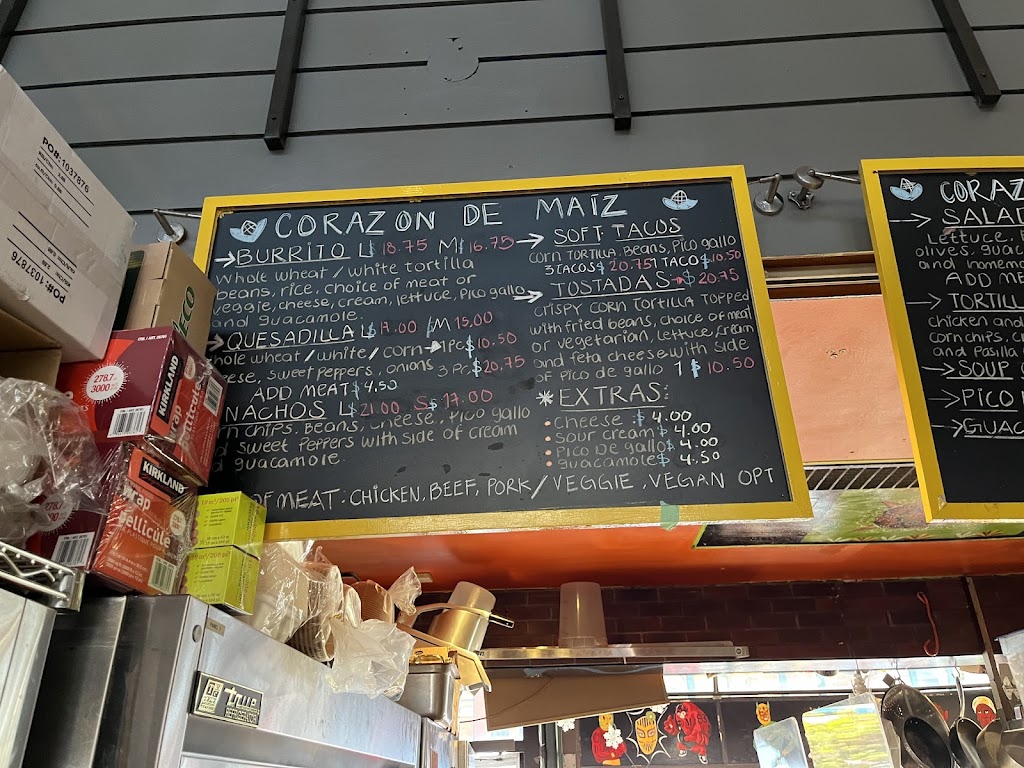 CORAZON DE MAÍZ
→BURRITO L$ 18.75 M$ 16.75
Whole wheat / white tortilla
beans, rice, choice of meat or
veggie, cheese, cream, lettuce, Pico gallo
and guacamole.
→QUESADILLA L$ 17.00 /M 15.00
whole wheat/white/corn→1Pc$10.50
cheese, sweet peppers, onions 3 Pc$20.75
ADD MEAT$4.50
NACHOS L$21.00 S$17.00
chips, Beans, cheese, Pico gallo
sweet Peppers with side of cream
guacamole
→ SOFT TACOS
corn TORTILLA. Beans, Pico gallo
3 TACOS$ 20.75 1 TACO $10.50
→ TOSTADAS → $20.75
CRISPY CORN TORTILLA TOPPED
with fried beans, choice of meat
or vegetarian, lettuce, cream
and feta cheese with side
of Pico de gallo 1 $ 10.50
* EXTRAS:
• cheese $ 4.00
• sour cream $ 4.00
• Pico De gallo $ 4.00
• guacamole $ 4.50
OF MEAT: CHICKEN, BEEF, PORK/ VEGGIE, VEGAN OPT
CORAZ
→ SALAD
Lettuce,
olives, guac
and homem
ADD ME
→ TORTILL
chicken and
corn chips, c
and Pasilla
→ SOUP
→ PICO
→ GUAC
PO#: 1037876
PO#: 1037876
ECO
278.7
3000
KIRKLAND
wrap
pellicule
KIRKLAND
wrap
pellicule
true